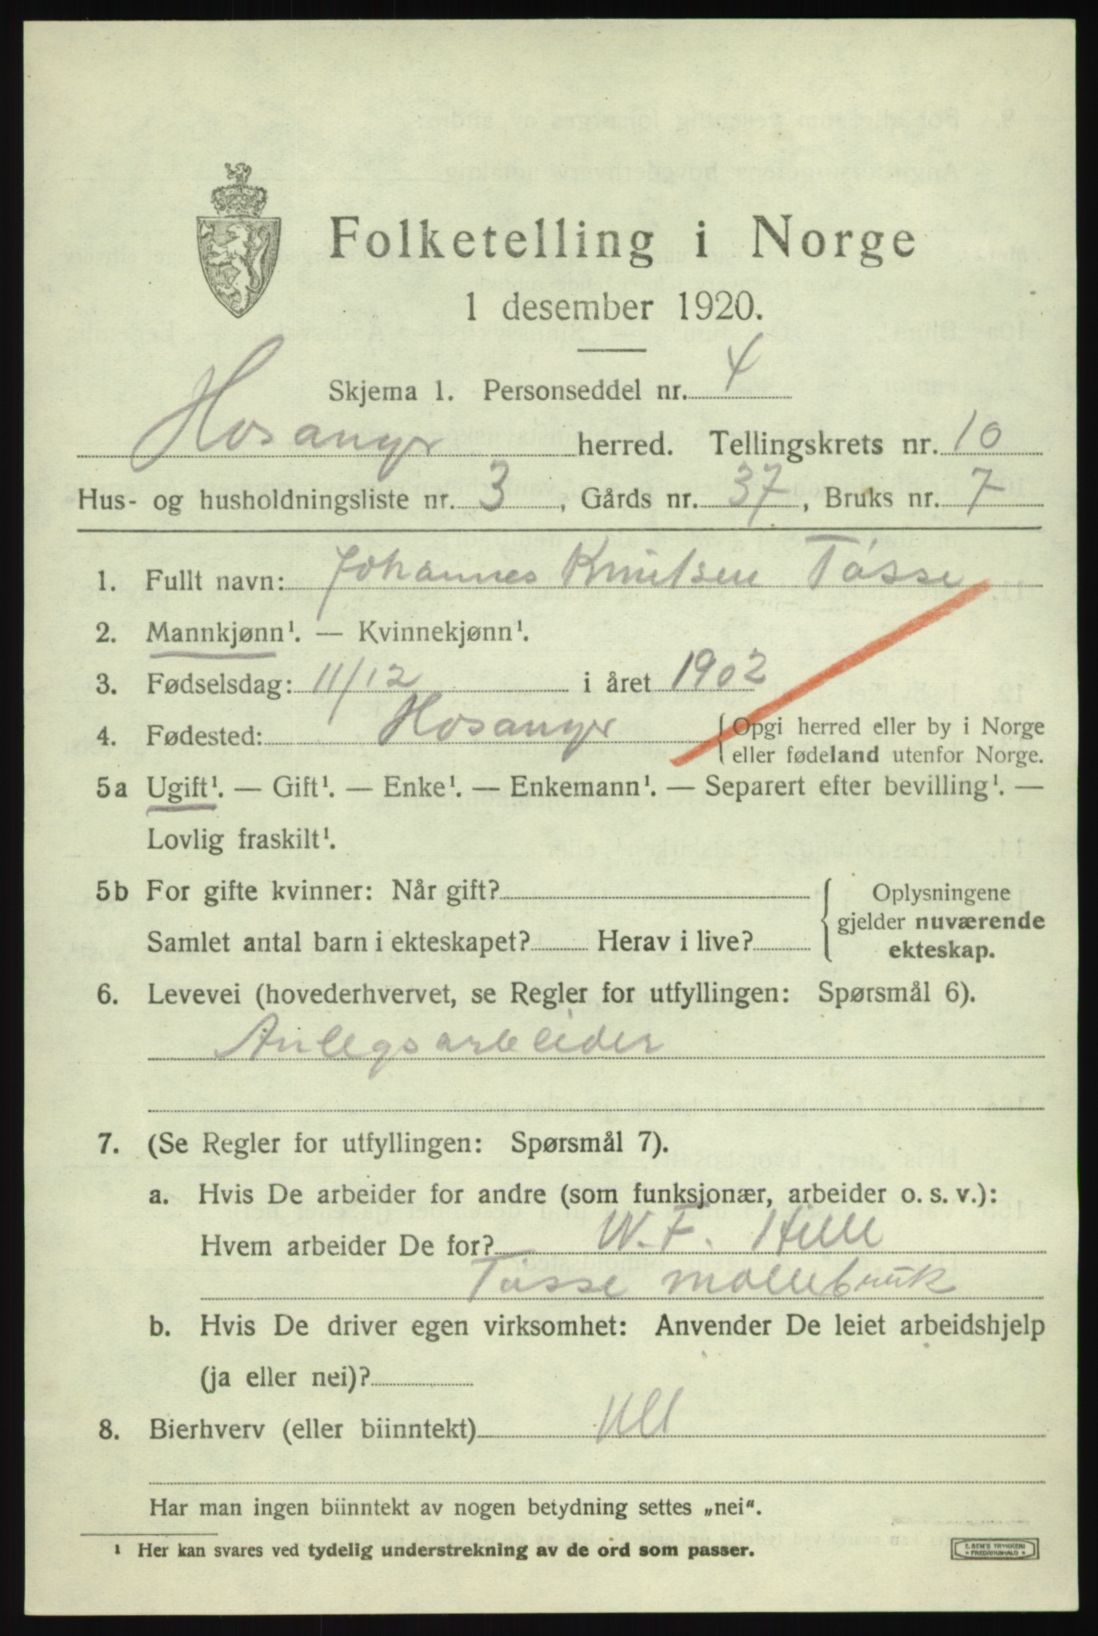 Folketelling i Norge
1 desember 1920.
Skjema 1. Personseddel nr. 4
Hosanger herred. Tellingskrets nr. 10
Hus- og husholdningsliste nr. 3, Gårds nr. 37, Bruks nr. 7
1. Fullt navn: Johannes Knutsen Tösse
2. Mannkjønn¹. — Kvinnekjønn¹.
3. Fødselsdag: 11/12 i året 1902
4. Fødested: Hosanger { Opgi herred eller by i Norge
eller fødeland utenfor Norge.
5a Ugift¹. — Gift¹. — Enke¹. — Enkemann¹. — Separert efter bevilling¹. —
Lovlig fraskilt¹.
5b For gifte kvinner: Når gift?
Samlet antal barn i ekteskapet? Herav i live?
{ Oplysningene
gjelder nuværende
ekteskap.
6. Levevei (hovederhvervet, se Regler for utfyllingen: Spørsmål 6).
Anlegsarbeider
7. (Se Regler for utfyllingen: Spørsmål 7).
a. Hvis De arbeider for andre (som funksjonær, arbeider o. s. v.):
Hvem arbeider De for? W. F. Hille
Tösse möllebruk
b. Hvis De driver egen virksomhet: Anvender De leiet arbeidshjelp
(ja eller nei)?
8. Bierhverv (eller biinntekt)
Har man ingen biinntekt av nogen betydning settes „nei“.
¹ Her kan svares ved tydelig understrekning av de ord som passer.